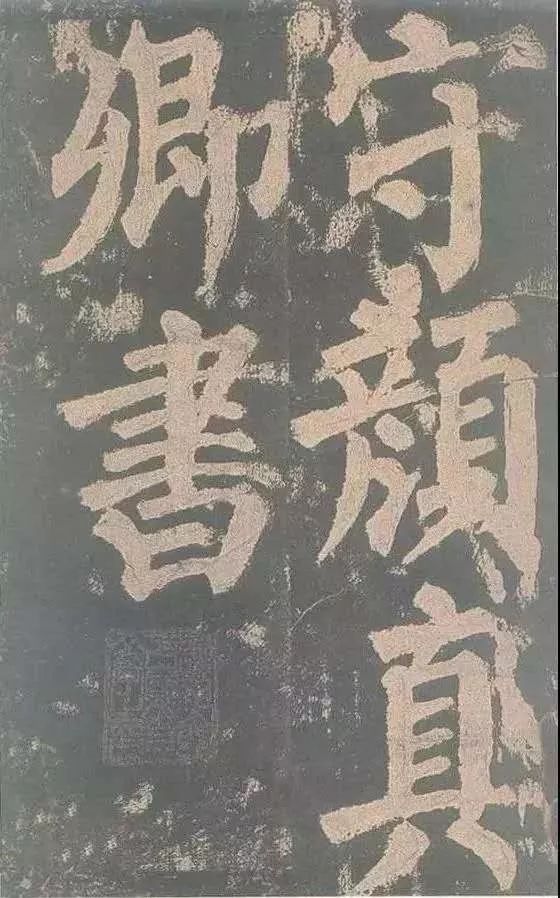 守顔真
卿書